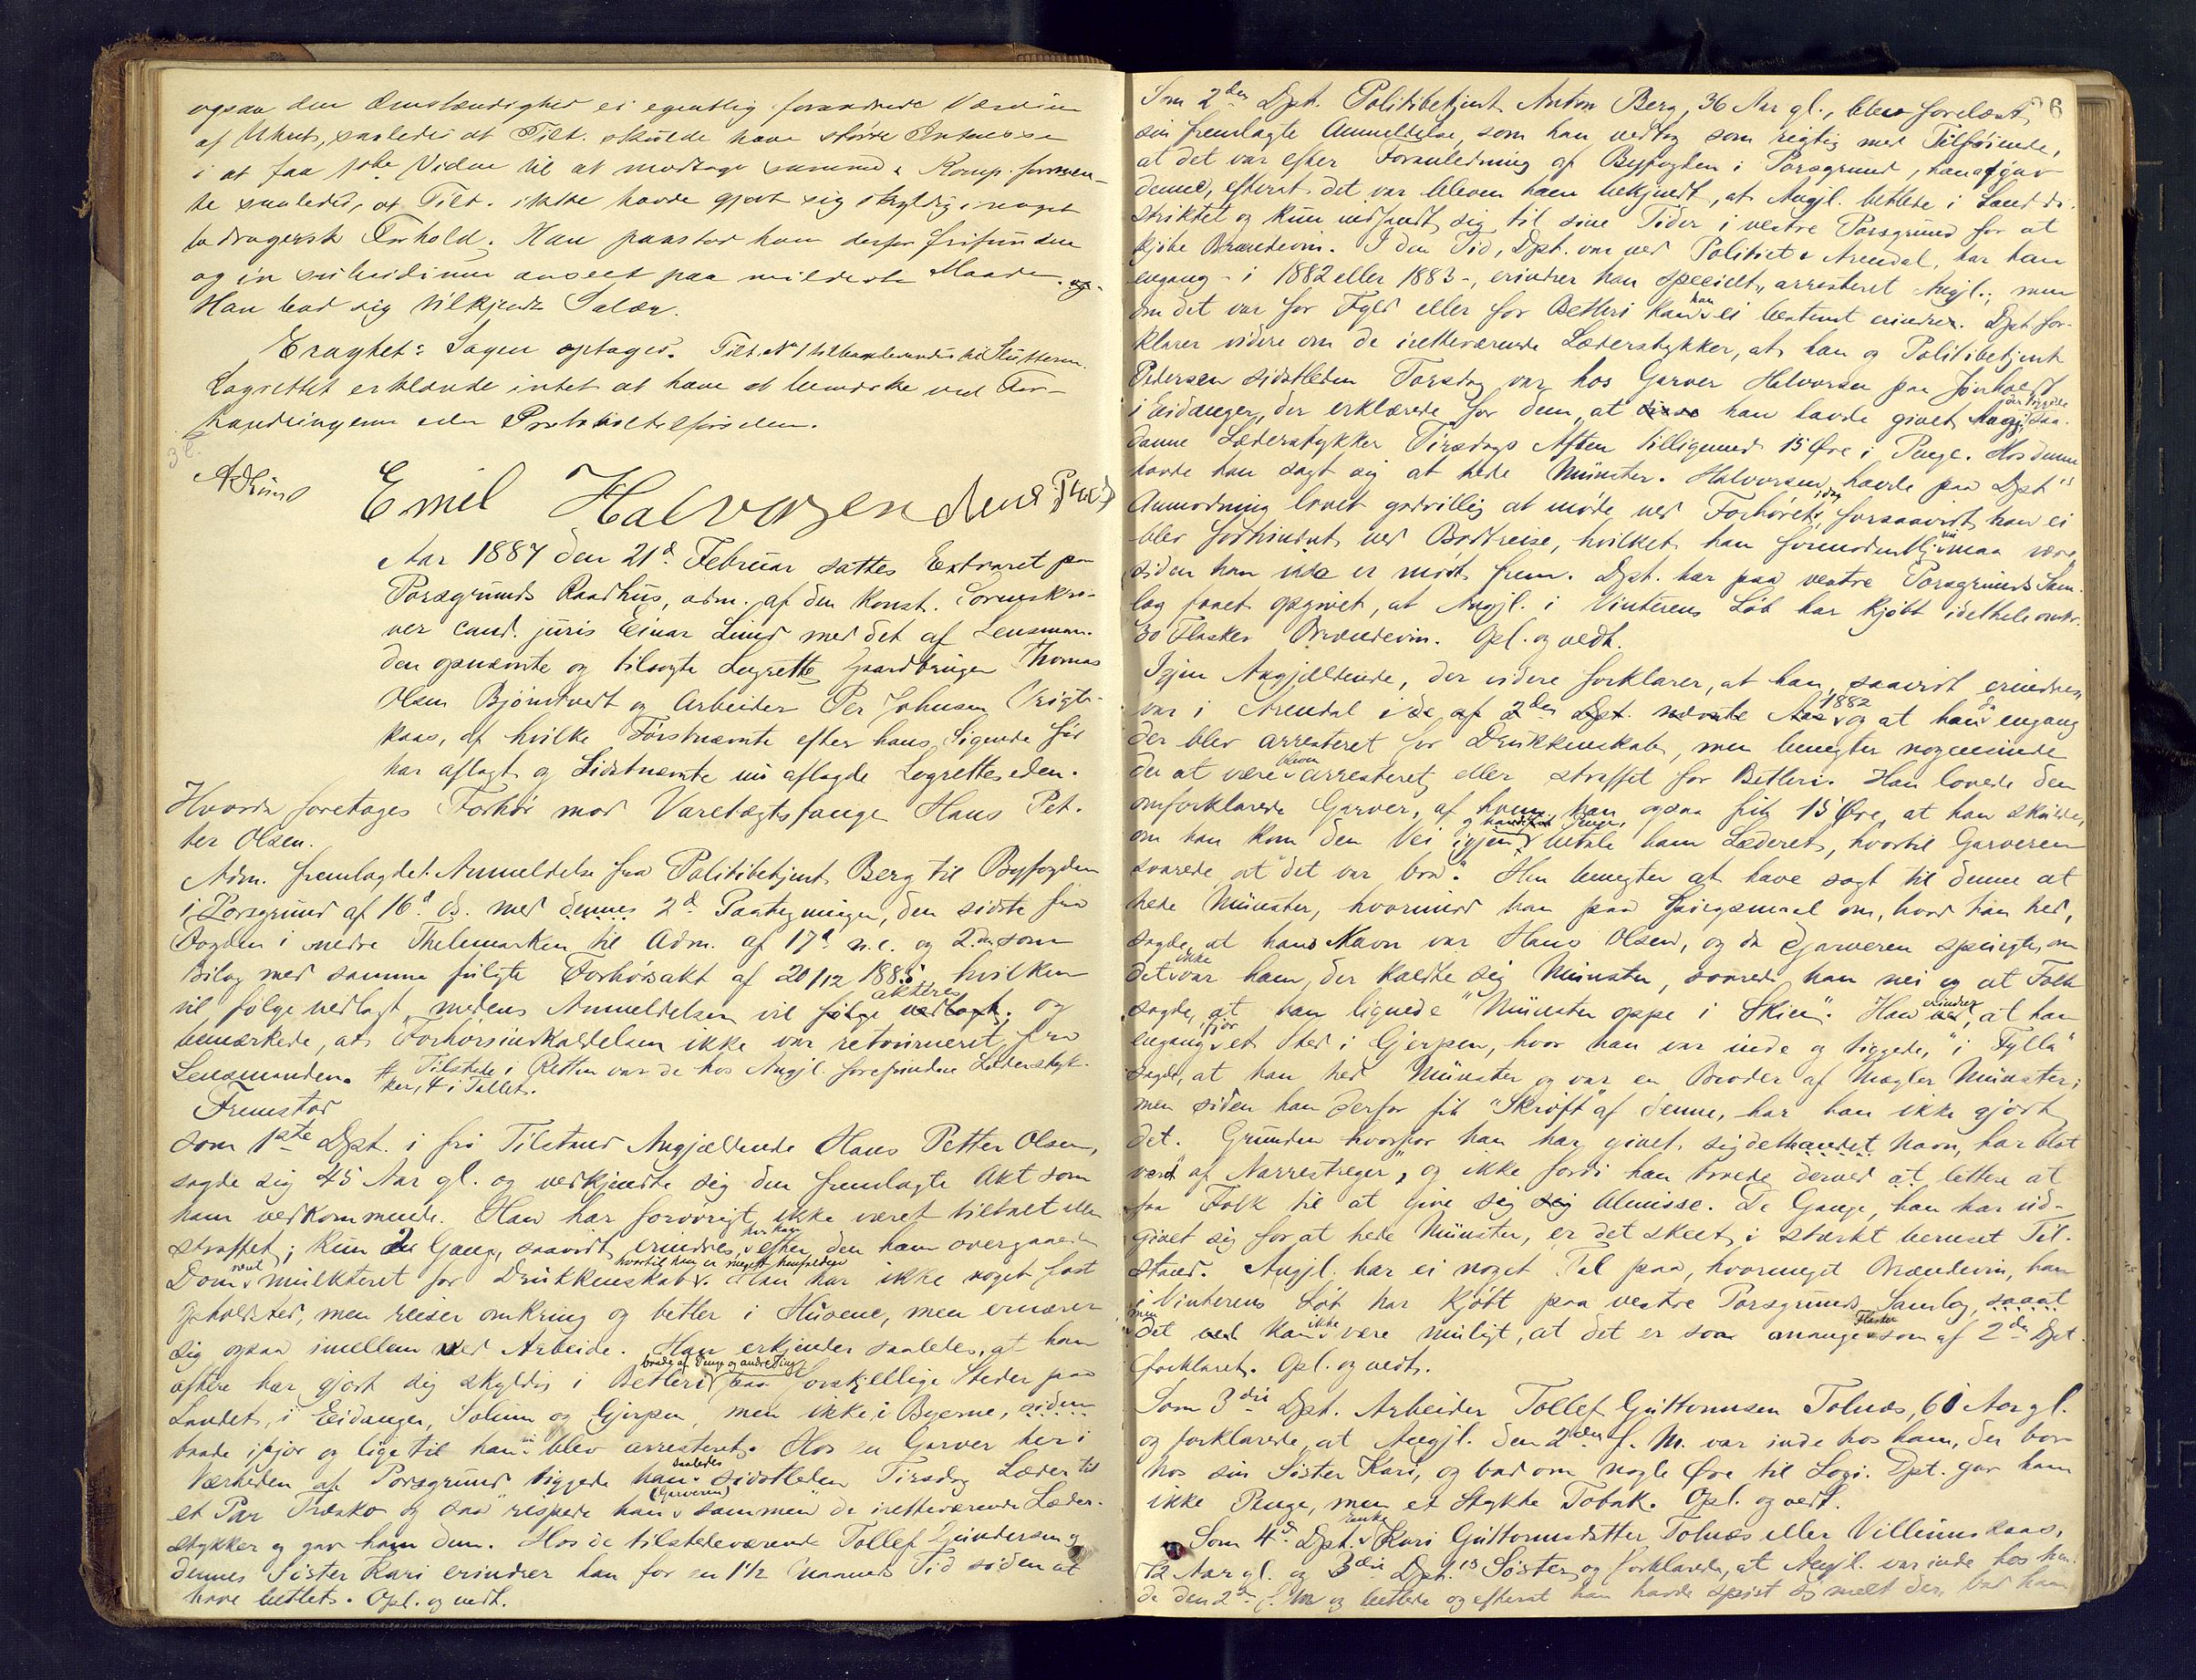 ogsaa den Omstændighed ei egentlig forandrede Værdien
af Uhret, saaledes at Tilt. skulde have større Interesse
i at faa 1ste Vidne til at modtage samme. Komp. formen-
te saaledes, at Tilt. ikke havde gjort sig skyldig i noget
bedragersk Forhold. Han paastod ham derfor frifunden
og in subsidium anseet paa mildeste Maade. og
Han bad sig tilkjendt Salær.
Eragtet: Sagen optages. Tilt. No 1 tilbagesendes til Slutteren.
Lagrettet erklærede intet at have at bemærke ved For-
handlingerne eller Protokoltilførselen.
Emil Halvorsen
Aar 1887 den 21d Februar sattes Extraret paa
Porsgrunds Raadhus, adm. af den konst. Sorenskri-
ver cand. juris Einar Lund med det af Lensman-
den opnævnte og tilsagte Lagrette Gaardbruger Thomas
Olsen Bjørntvedt og Arbeider Per Johnsen Vrigt-
kaas, af hvilke Førstnævnte efter hans Sigende før
har aflagt og Sidstnævnte nu aflagde Lagretteseden.
Hvorda foretoges Forhør mod Varetægtsfange Hans Pet-
ter Olsen.
Adm. fremlagde 1. Anmeldelse fra Politibetjent Berg til Byfogden
i Porsgrund af 16d ds. med dennes 2d Paategninger, den sidste fra
Fogden i nedre Thelemarken til Adm. af 17d n.e. og 2. den som
Bilag med samme fulgte Forhørsakt af 20/12 1885 hvilken
vil følge vedlagt, medens Anmeldelsen vil følge vedlagt akteres, og
bemærkede, at Forhørsindkaldelsen ikke var retourneret fra
Lensmanden. # Tilstede i Retten var de hos Angjl. forefundne Læderstyk-
ker, 4 i Tallet.
Fremstod
som 1ste Dpt. i fri Tilstand Angjældende Hans Petter Olsen,
sagde sig 45 Aar gl. og vedkjendte sig den fremlagte Akt som
ham vedkommende. Han har forøvrigt ikke været tiltalt eller
straffet; kun 2 Gange, saavidt erindres, har han efter den ham overgaaede
Dom været mulkteret for Drukkenskab, hvortil han er meget henfalden. Han har ikke noget fast
Opholdsted, men reiser omkring og betler i Husene, men ernærer
sig ogsaa imellem ved Arbeide. Han erkjender saaledes, at han
oftere har gjort sig skyldig i Betleri baade af Penge og andre Ting paa forskjellige Steder paa
Landet, i Eidanger, Solum og Gjerpen, men ikke i Byerne, siden
baade ifjor og lige til han nu blev arresteret. Hos en Garver her i
Nærheden af Porsgrund tiggede han saaledes sidstleden Tirsdag Læder til
et Par Træsko og saa "respede han (Garveren) sammen" de iretteværende Læder-
stykker og gav ham dem. Hos de tilstedeværende Tollef Gundersen og
dennes Søster Kari erindrer han for en 1½ Maaneds Tid siden at
have betlet. Opl. og vedt.
6
Som 2den Dpt. Politibetjent Anton Berg, 36 Aar gl., blev forelæst
sin fremlagte Anmeldelse, som han vedtog som rigtig med Tilføiende,
at det var efter Foranledning af Byfogden i Porsgrund, han afgav
denne, efterat det var bleven ham bekjendt, at Angjl. betlede i Landdi-
striktet og kun indfandt sig til sine Tider i vestre Porsgrund for at
kjøbe Brændevin. I den Tid, Dpt. var ved Politiet i Arendal, har han
engang - i 1882 eller 1883 -, erindrer han specielt, arresteret Angjl.; men
om det var for Fyld eller for Betleri kan han ei bestemt erindre. Dpt. for-
klarer videre om de iretteværende Læderstykker, at han og Politibetjent
Pedersen sidstleden Torsdag var hos Garver Halvorsen paa Jønholdt
i Eidanger, der erklærede for dem, at disse han havde givet Angjl. der tiggede saa-
danne Læderstykker Tirsdags Aften tilligemed 15 Øre i Penge. Hos denne
havde han sagt sig at hede Münster. Halvorsen havde paa Dpts
Anmodning lovet godvillig at møde ved Forhøret idag, forsaavidt han ei
blev forhindret ved Bortreise, hvilket han formodentlig nu maa være,
siden han ikke er mødt frem. Dpt. har paa vestre Porsgrunds Sam-
lag faaet opgivet, at Angjl. i Vinterens Løb har kjøbt idethele omtr.
30 Flasker Brændevin. Opl. og vedt.
Igjen Angjældende, der videre forklarer, at han, saavidt erindres,
var i Arendal i de af 2den Dpt. nævnte Aar 1882 og at han engang
der blev arresteret for Drukkenskab, men benegter nogensinde
der at være bleven arresteret eller straffet for Betleri. Han lovede den
omforklarede Garver, af hvem han ogsaa fik 15 Øre, at han skulde,
om han kom den Vei igjen og havde Penge, betale ham Læderet, hvortil Garveren
svarede, at "det var bra". Han benegter at have sagt til denne at
hede Münster, hvorimod han paa Spørgsmaal om, hvad han hed,
sagde, at hans Navn var Hans Olsen, og da Garveren spurgte, om
det ikke var ham, der kaldte sig Münster, svarede han nei og at Folk
sagde, at han lignede "Münster oppe i Skien". Han erindrer, at han
engang ifjor et Sted i Gjerpen, hvor han var inde og tiggede, "i Fylla"
sagde, at han hed Münster og var en Broder af Mægler Münster;
men siden han derfor fik "Skrøft" af denne, har han ikke gjort
det. Grunden hvorfor han har givet sig det andet Navn, har blot
været af "Narrestreger", og ikke fordi han troede derved at lettere at
faa Folk til at give sig sig Almisse. De Gange, han har ud-
givet sig for at hede Münster, er det skeet i stærkt beruset Til-
stand. Angjl. har ei noget Tal paa, hvormeget Brændevin, han
i Vinterens Løb har kjøbt paa vestre Porsgrunds Samlag, saaat
men det ved kan ikke være muligt, at det er saa mange Flasker som af 2den Dpt.
forklaret. Opl. og vedt.
Som 3die Dpt. Arbeider Tollef Guttormsen Tolnæs, 60 Aar gl.
og forklarede, at Angjl. den 2den f. M. var inde hos ham, der bor
hos sin Søster Kari, og bad om nogle Øre til Logi. Dpt. gav ham
ikke Penge, men et Stykke Tobak. Opl. og vedt.
Som 4d Dpt. Enke Kari Guttormsdatter Tolnæs eller Villumskaas,
72 Aar gl. og 3die Dpts Søster og forklarede, at Angjl. var inde hos hen-
de den 2den f. M. og betlede og efterat han havde spist sig mæt der, bad han